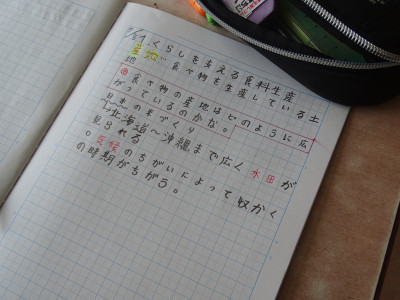 くらしを支える食料生産
産地…食べ物を生産している土
地
め 食べ物の産地はどのように広
がっているのかな。
日本の米づくり
○北海道～沖縄まで広く水田が
見られる
○気候のちがいによって収かく
の時期がちがう。